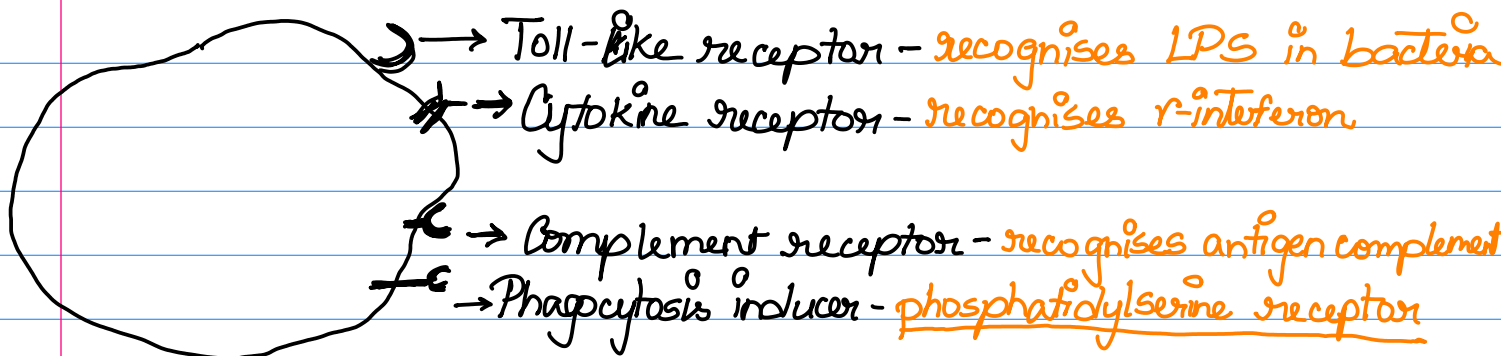 → Toll-like receptor - recognises LPS in bacteria
→ Cytokine receptor - recognises r-inteferon
→ Complement receptor - recognises antigen complement
→ Phagocytosis inducer - phosphatidylserine receptor